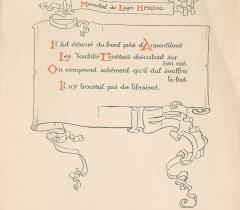 Maréchal de Logis Herizog
Il fut évacué du front près d'Armentières
Les Toubibs Écossais discutant sur
son cas.
On comprend aisément qu'il dut souffrir
là-bas.
Il n'y trouvait pas de libraires.